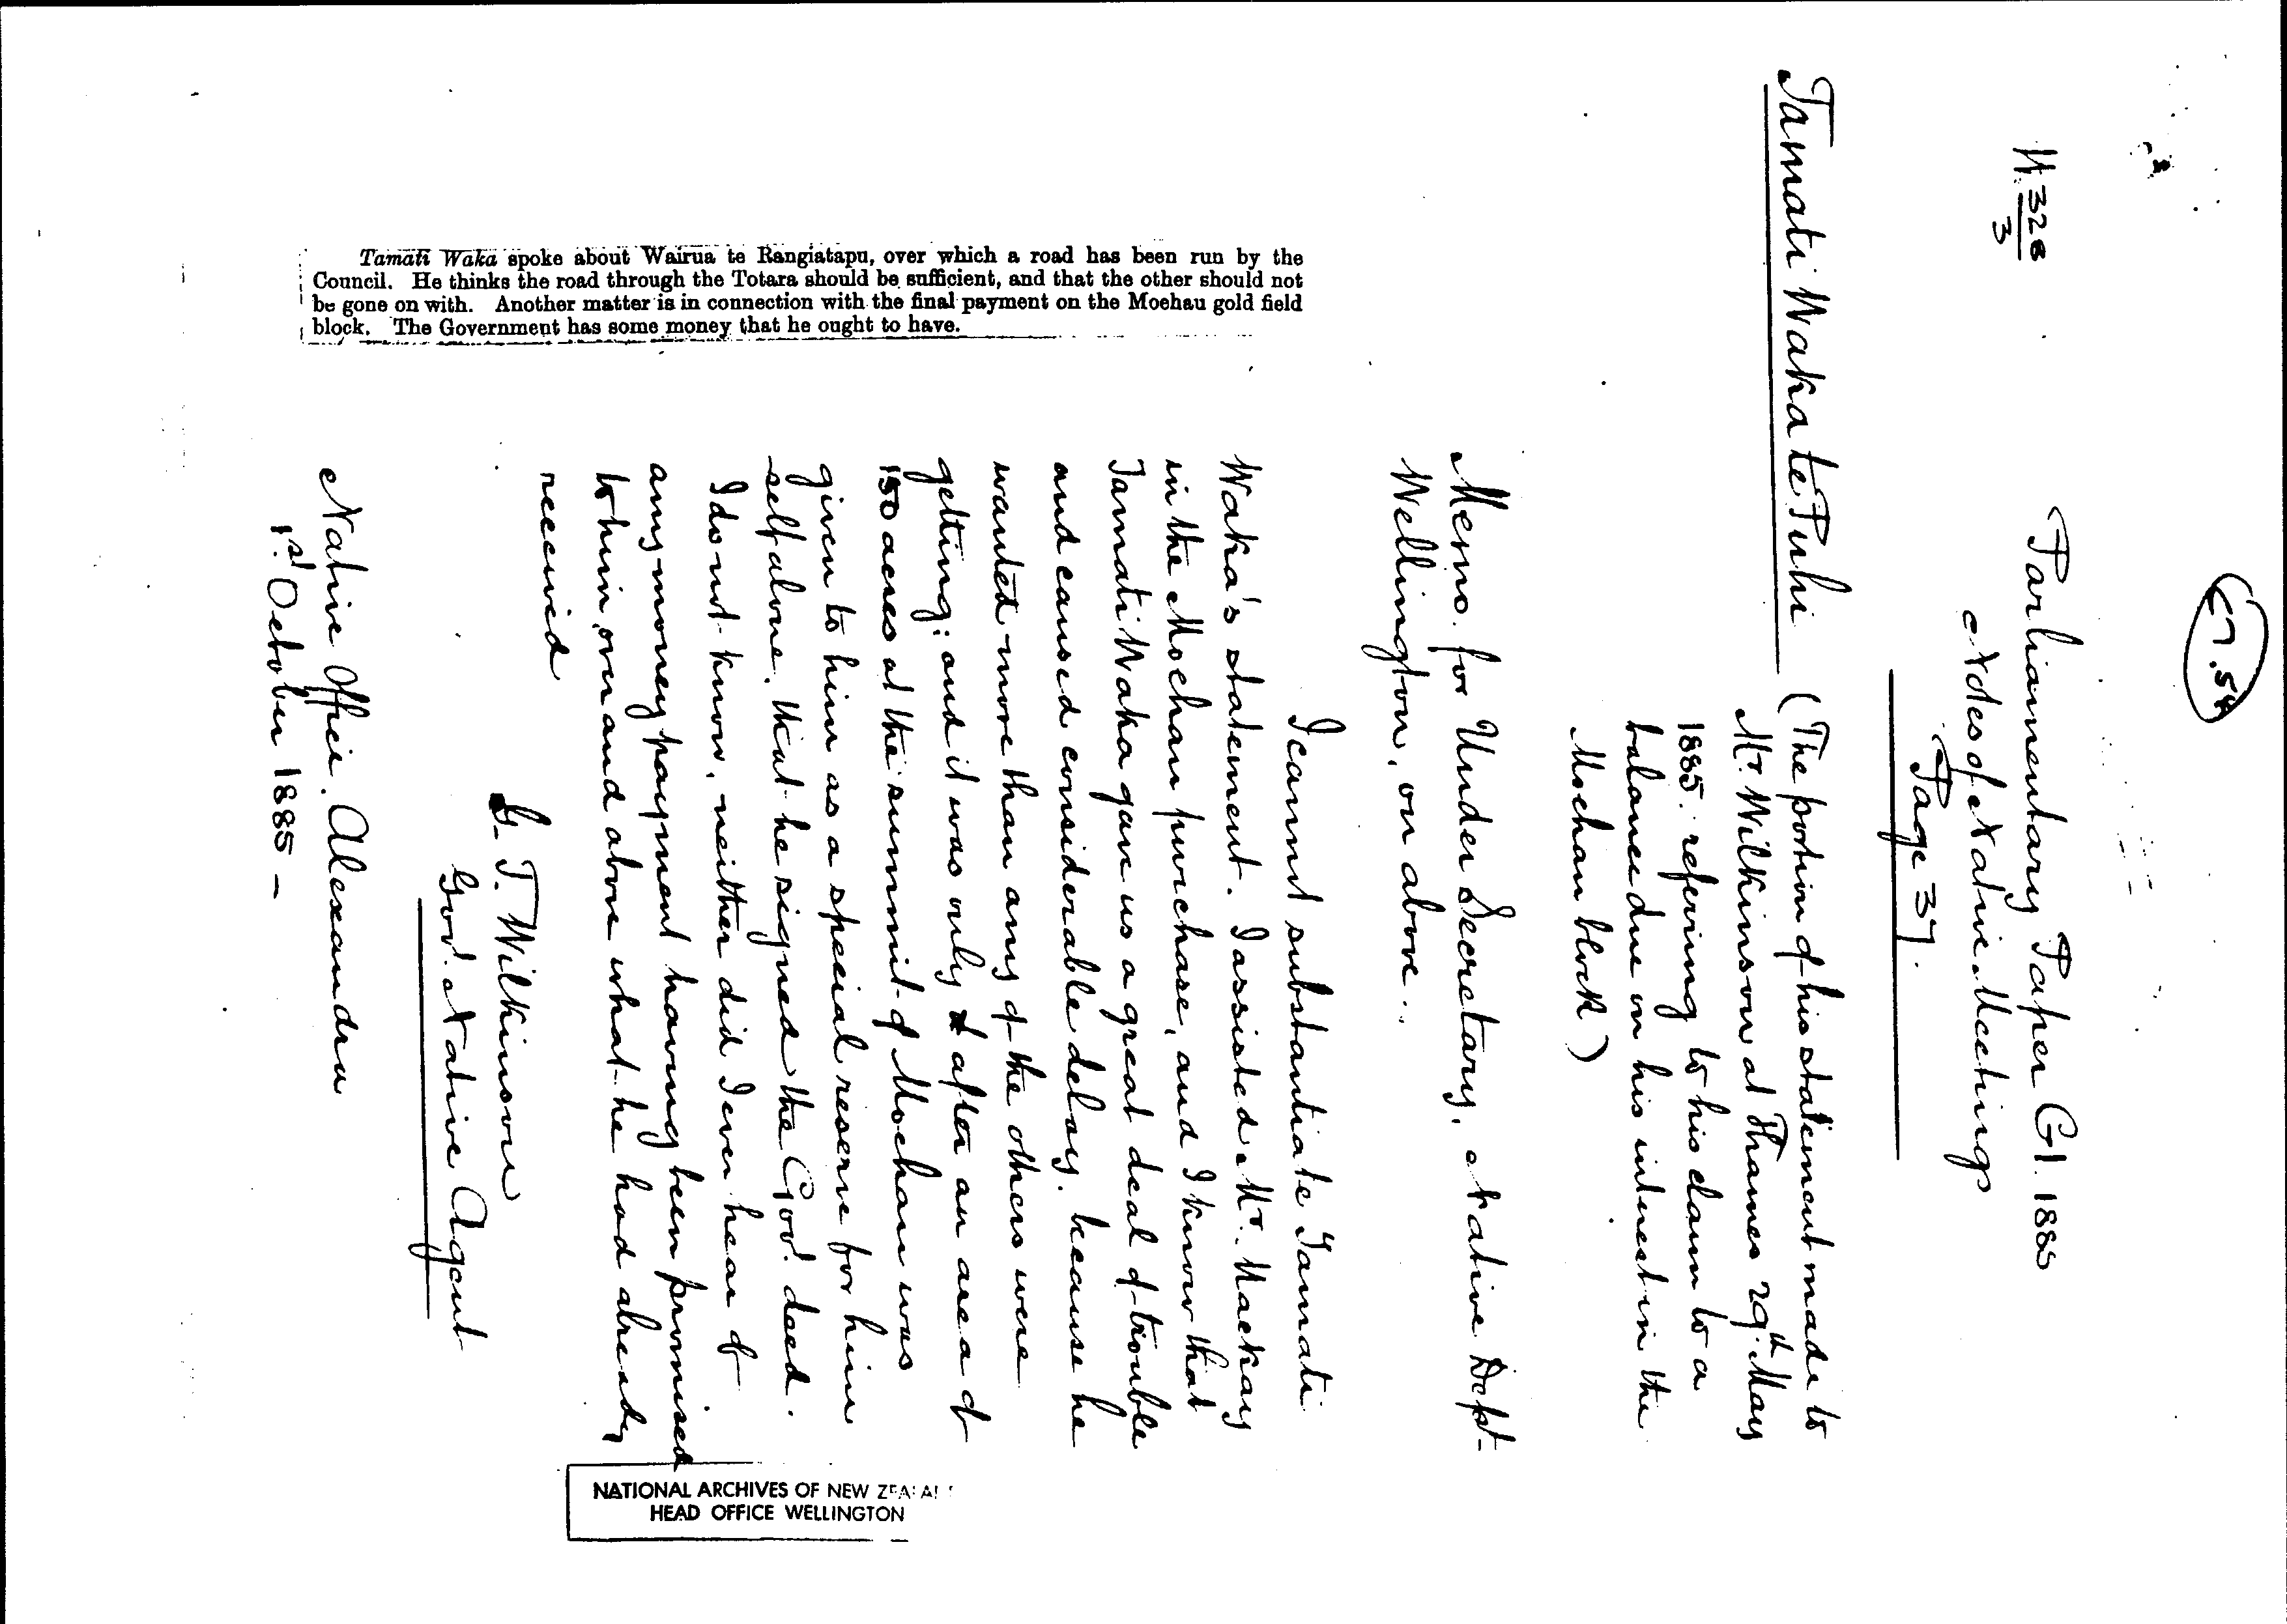 N. 328
3
Parliamentary Paper G1. 1885
Notes of Native Meetings
Page 37.
Tamati Waka te Puhi (The portion of his statement made to
Mr. Wilkinson at Thames 29th. May
1885. referring to his claim to a
balance due on his interest in the
Moehau block)
Memo. for Under Secretary, Native Dept-
Wellington, on above.
I cannot substantiate Tamati
Waka's statement. I assisted Mr. Mackay
in the Moehau purchase, and I know that
Tamati Waka gave us a great deal of trouble
and caused considerable delay. because he
wanted more than any of the others were
getting; and it was only after an area of
150 acres at the summit of Moehau was
given to him as a special reserve for him
-self alone, that he signed the Govt. deed.
I do not know, neither did I ever hear of
any money payment having been promised
to him, over and above what he had already
received
G. T. Wilkinson
Govt. Native Agent
Native Office. Alexandra
1st. October 1885 -
Tamati Waka spoke about Wairua te Rangiatapu, over which a road has been run by the
Council. He thinks the road through the Totara should be sufficient, and that the other should not
be gone on with. Another matter is in connection with the final payment on the Moehau gold field
block. The Government has some money that he ought to have.
NATIONAL ARCHIVES OF NEW ZEALAND
HEAD OFFICE WELLINGTON